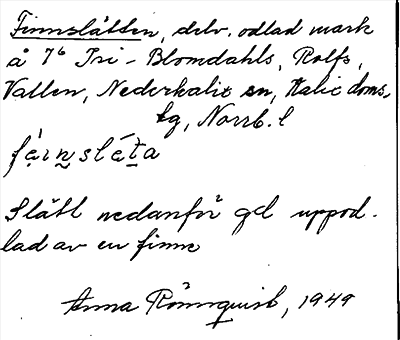 Finnslåtten, delv. odlad mark
å 7⁶ Pri-Blomdahls, Rolfs,
Vallen, Nederkalix sn, Kalix doms.
tg, Norrb. l
Slått nedanför gd uppod-
lad av en finne
Anna Rönnquist, 1949